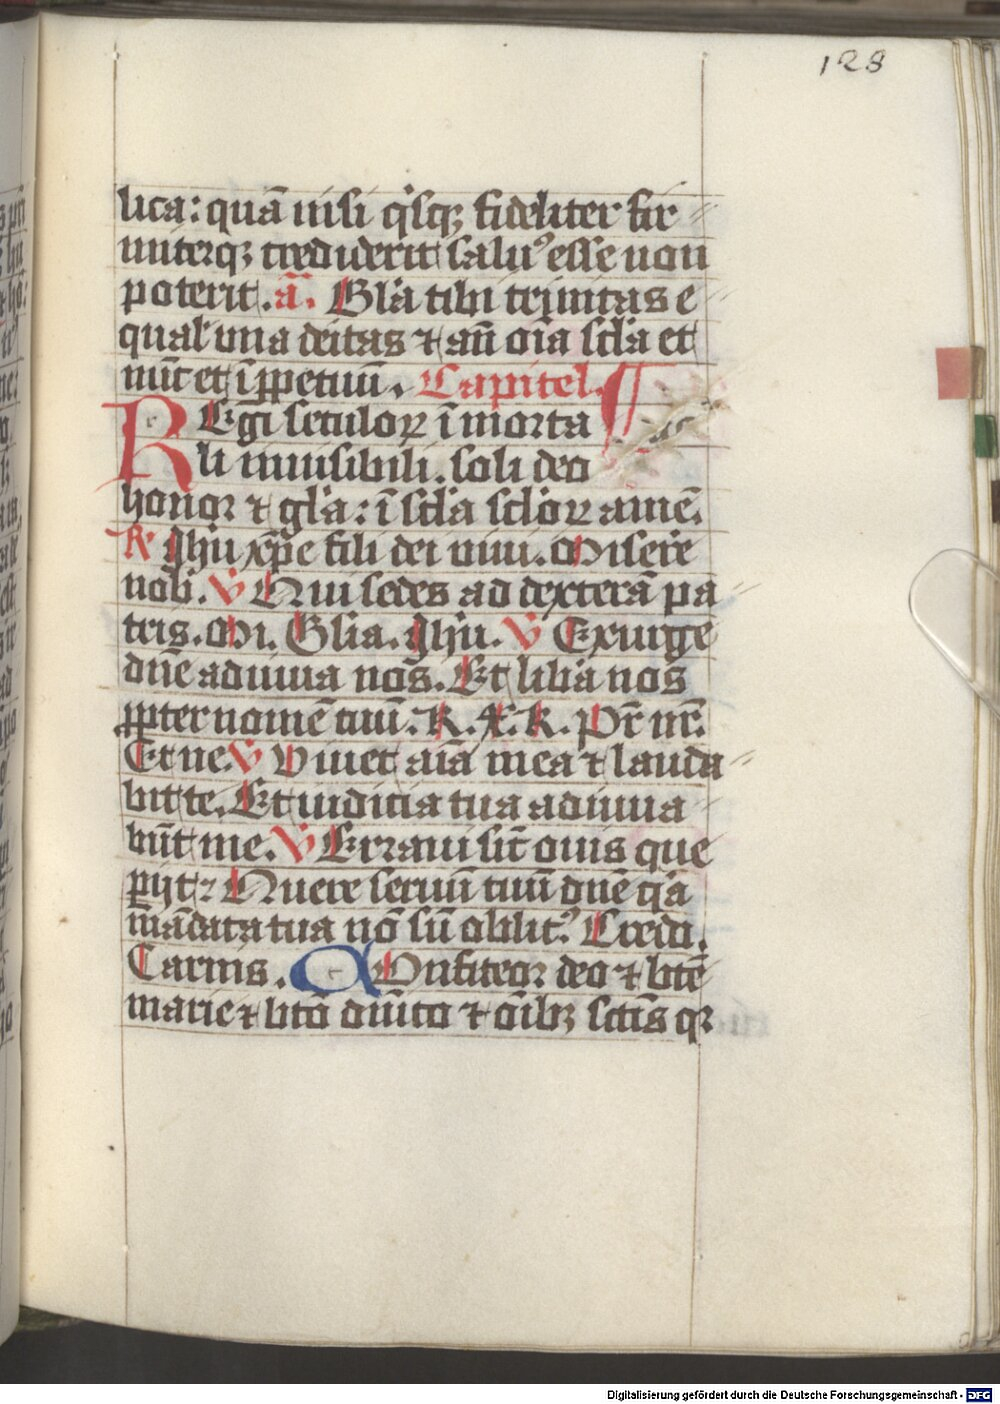 128
lica: quā nisi q̇sq̄ȝ fideliter fir
miterqȝ crediderit saluꝰ esse non
poterit. añ. Glīa tibi trinitas e
qual' una deitas ⁊ añ oīa sc̄la et
nūc et ī ꝑpetuū. Capitel. ¶
REgi seculoꝝ īmorta
li inuisibili. soli deo
honor ⁊ gl'a: ī sc̄la sc̄loꝝ amē.
℟ Ihū xp̄e fili dei uiui. Miserē
nob̄. V Qui sedes ad dexterā pa
tris. Mi. Glīa. Ihū. V Exurge
dn̄e adiuua nos. Et lib̄a nos
ꝓpter nomē tuū. K. X̄. K. Pr̄ nr̄.
Et ne. V Viuet aīa mea ⁊ lauda
bit te. Et iudicia tua adiuua
būt me. V Erraui sic̄ ouis que
ꝑijt: Quere seruū tuū dn̄e q̇a
mādata tua nō sū oblitꝰ. Credi.
Carnis. COnfiteor deo ⁊ bt̄e
marie ⁊ bt̄o dn̄ico ⁊ oībȝ sctīs qꝛ
Digitalisierung gefördert durch die Deutsche Forschungsgemeinschaft - DFG